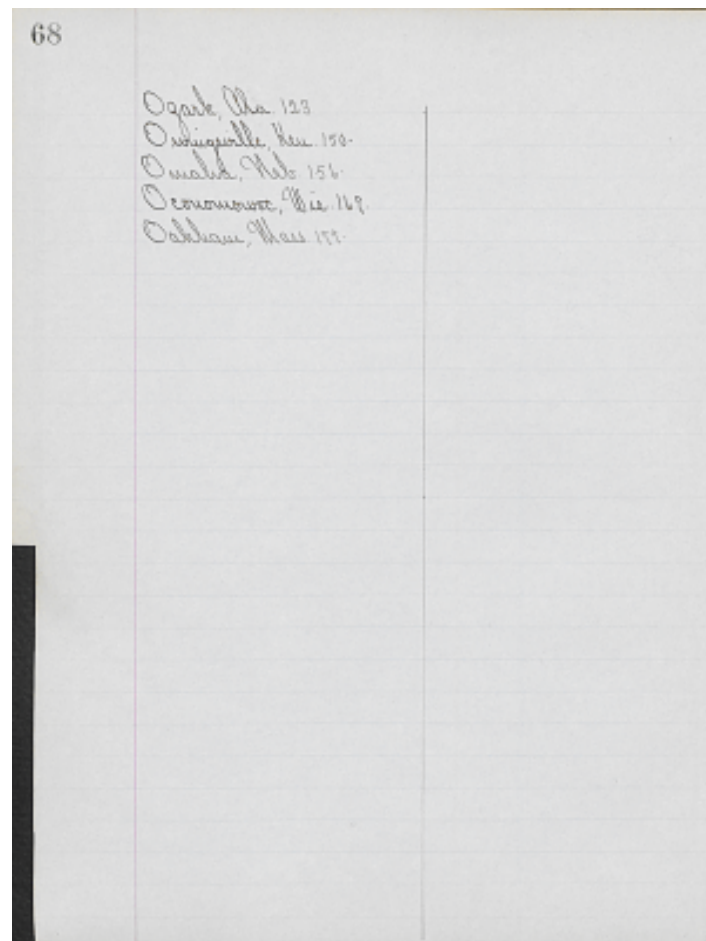 68
Ozark, Ala. 123
Owingsville, Ken. 150.
Omaha, Neb. 156.
Oconomowoc, Wis. 169.
Oakham, Mass